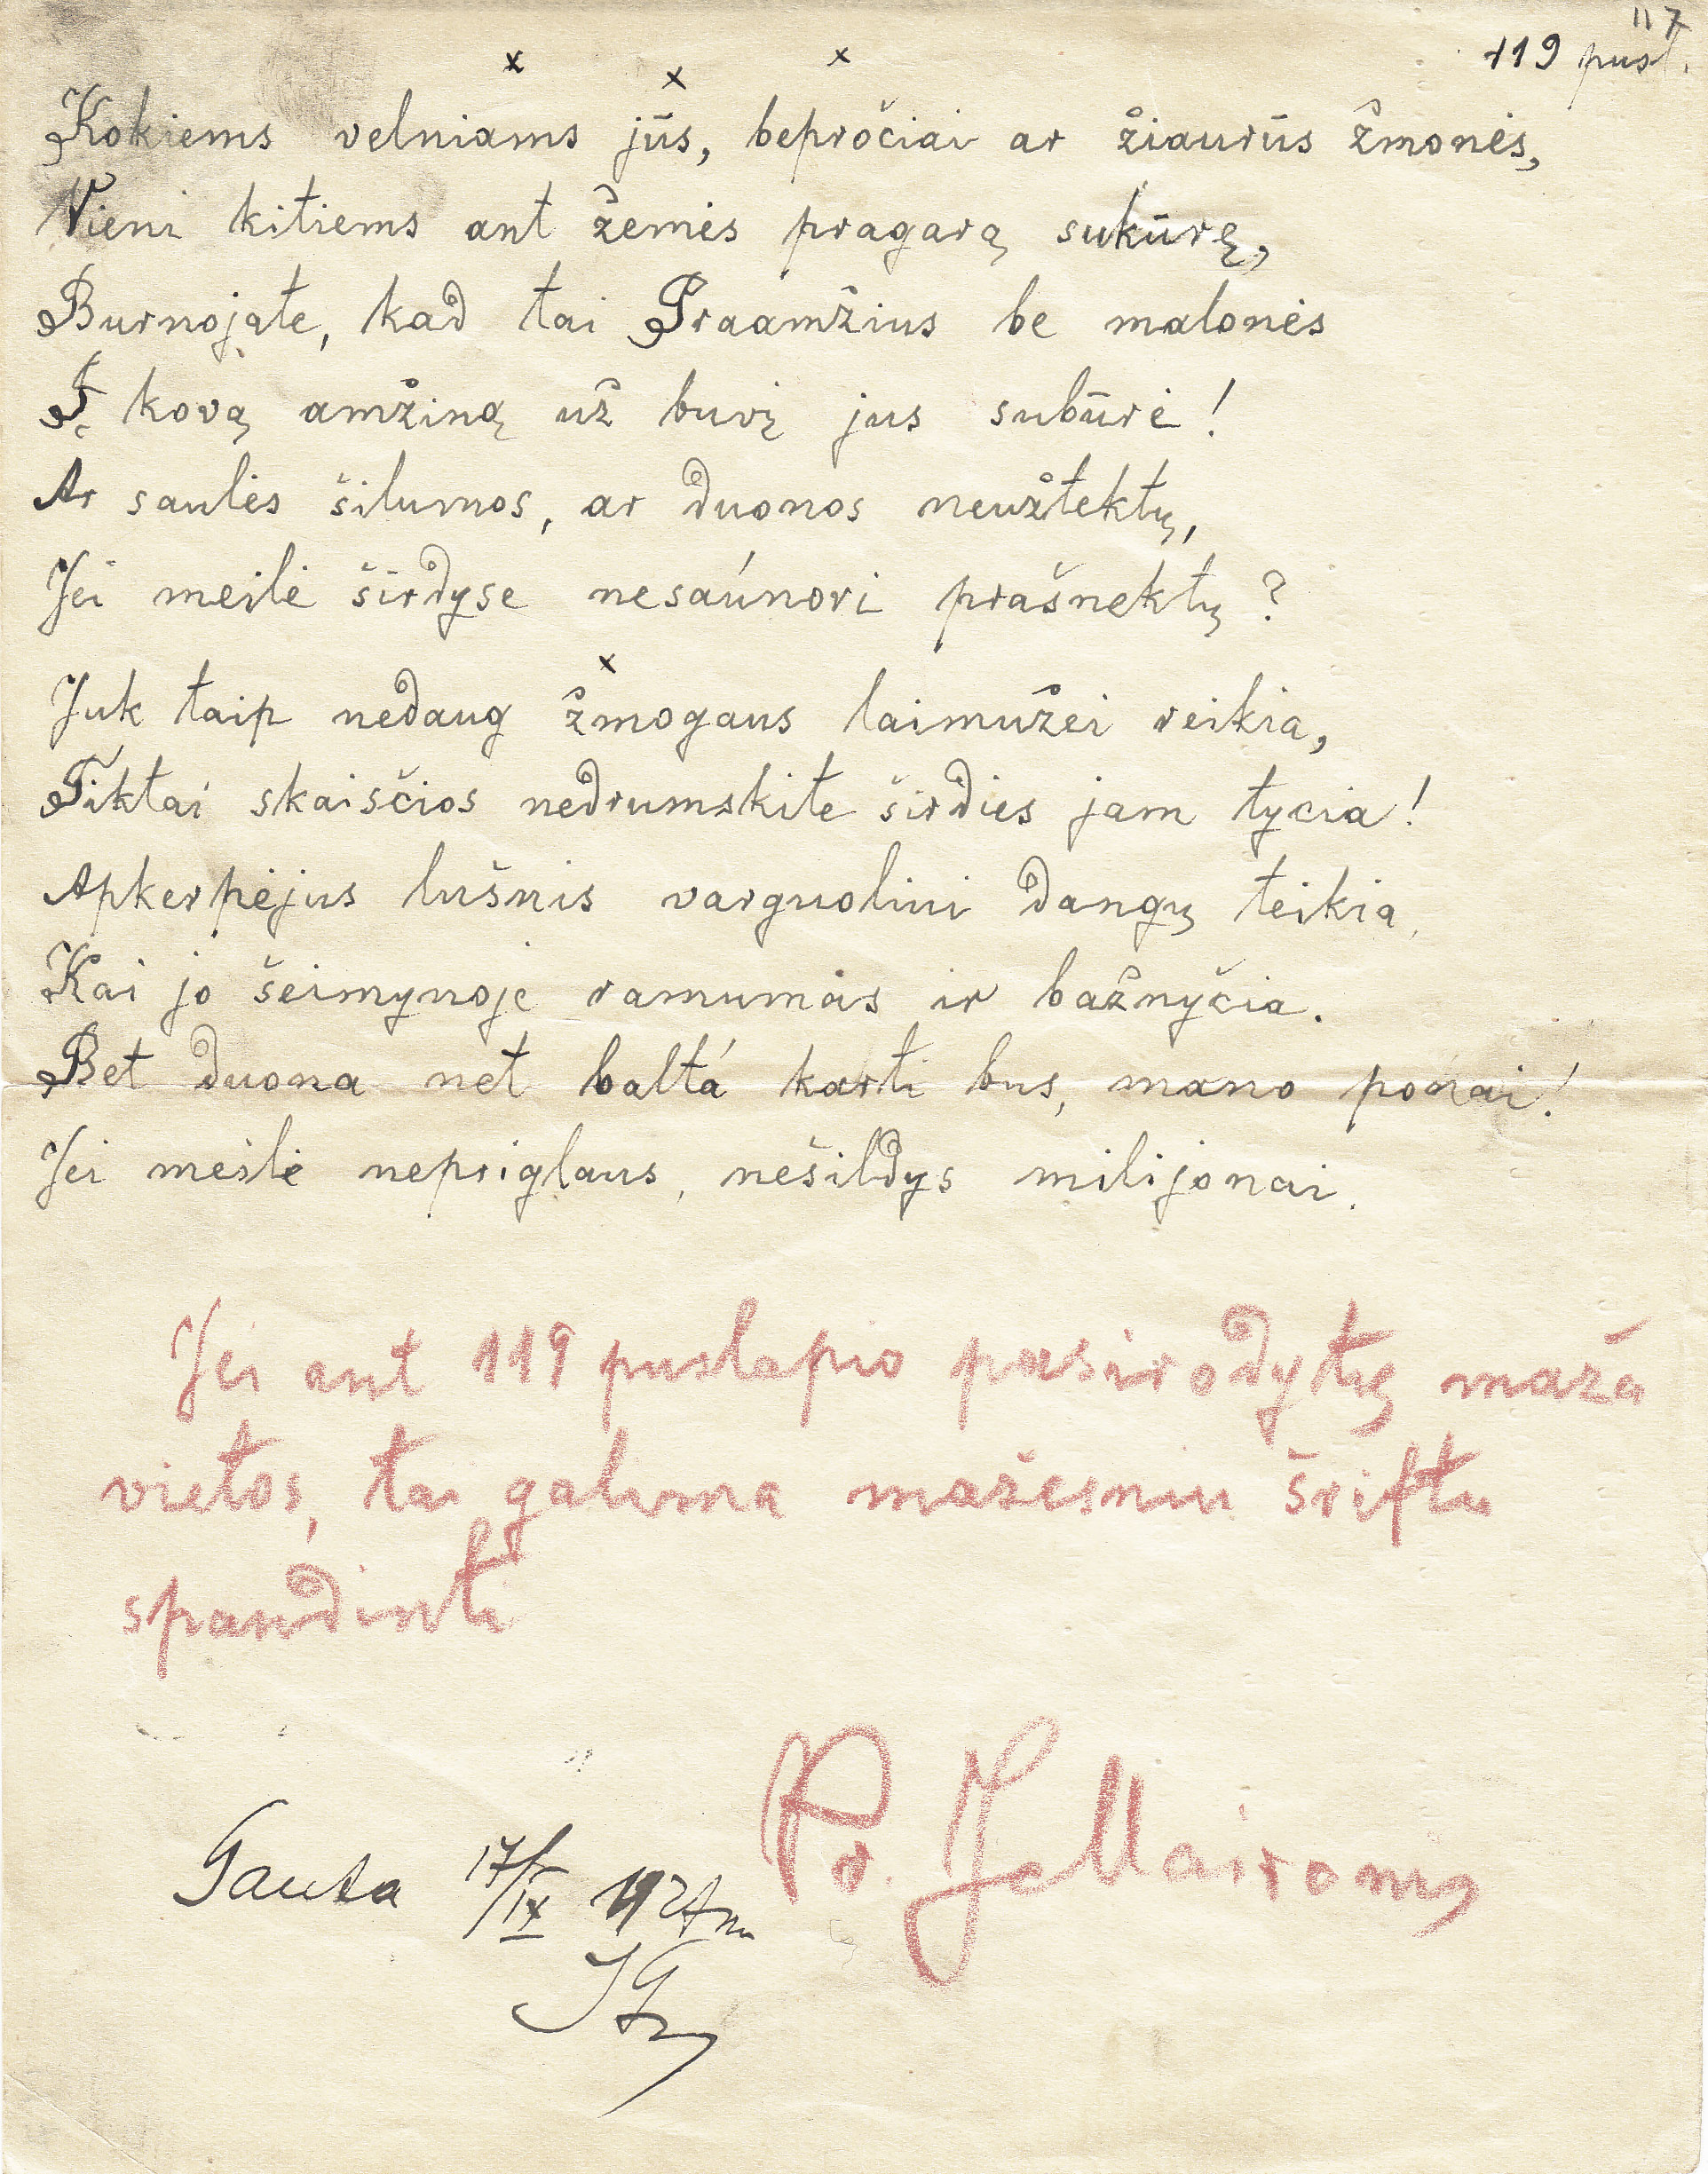 117
119 pusl.
x x x
Kokiems velniams jūs, bepročiai ar žiaurūs žmonės,
Vieni kitiems ant žemės pragarą sukūrę,
Burnojate, kad tai Praamžius be malonės
Į kovą amžiną už buvį jus subūrė!
Ar saulės šilumos, ar duonos neužtektų,
Jei meilė širdyse nesaúnori prašnektų?
x
Juk taip nedaug žmogaus laimužei reikia,
Tiktai skaisčios nedrumskite širdies jam tycia!
Apkerpėjus lušnis varguoliui dangų teikia,
Kai jo šeimynoje ramumas ir bažnyčia.
Bet duona net baltá karti bus, mano ponai!
Jei meilė nepriglaus, nešildys milijonai.
Jei ant 119 puslapio pasirodytų maža
vietos, tai galima mažesniu šriftu
spaudinti
Pr. J. Maironis
Gauta 17/IX 192 m